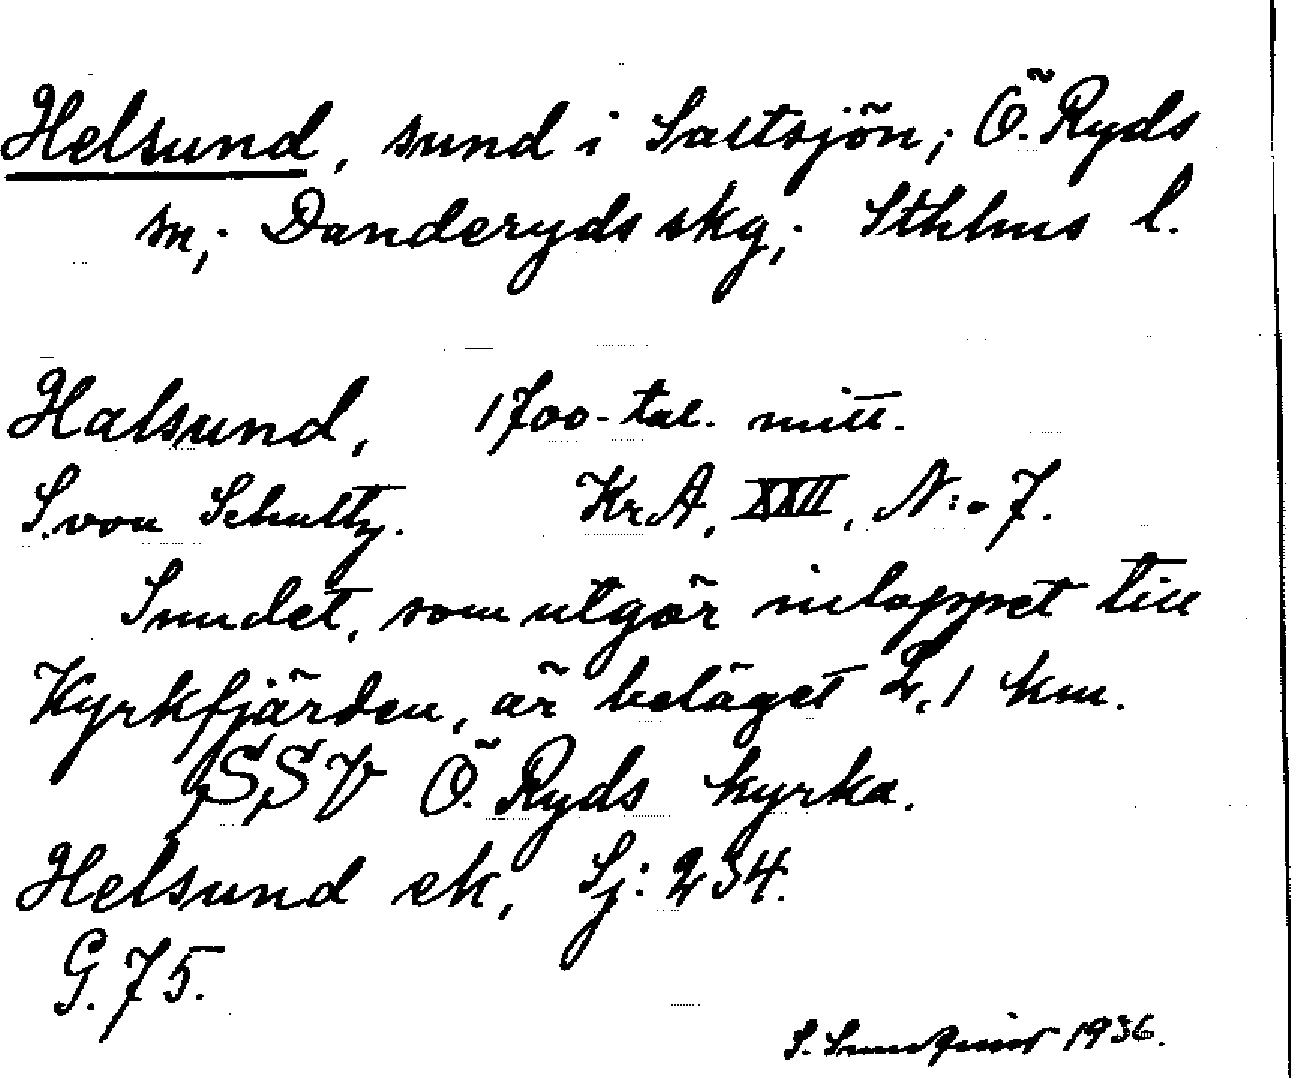 Helsund, sund i Saltsjön; Ö. Ryds
sn; Danderyds skg; Sthlms l.
Halsund, 1700-tal. mitt.
S. von Schultz. KrA, XXII, N:o 7.
Sundet, som utgör inloppet till
Kyrkfjärden, är beläget 2,1 km.
SSV Ö. Ryds kyrka.
Helsund ek, Sj: 234.
G. 75.
S. Sundqvist 1936.